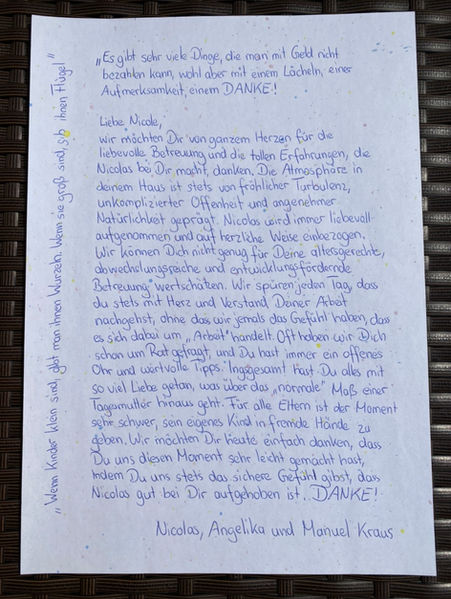 „Es gibt sehr viele Dinge, die man mit Geld nicht
bezahlen kann, wohl aber mit einem Lächeln, einer
Aufmerksamkeit, einem DANKE!
Liebe Nicole,
wir möchten Dir von ganzem Herzen für die
liebevolle Betreuung und die tollen Erfahrungen, die
Nicolas bei Dir macht, danken. Die Atmosphäre in
deinem Haus ist stets von fröhlicher Turbulenz,
unkomplizierter Offenheit und angenehmer
Natürlichkeit geprägt. Nicolas wird immer liebevoll
aufgenommen und auf herzliche Weise einbezogen.
Wir können Dich nicht genug für Deine altersgerechte,
abwechslungsreiche und entwicklungsfördernde
Betreuung wertschätzen. Wir spüren jeden Tag, dass
du stets mit Herz und Verstand Deiner Arbeit
nachgehst, ohne dass wir jemals das Gefühl haben, dass
es sich dabei um „Arbeit" handelt. Oft haben wir Dich
schon um Rat gefragt, und Du hast immer ein offenes
Ohr und wertvolle Tipps. Insgesamt hast Du alles mit
so viel Liebe getan, was über das „normale" Maß einer
Tagesmutter hinaus geht. Für alle Eltern ist der Moment
sehr schwer, sein eigenes Kind in fremde Hände zu
geben. Wir möchten Dir heute einfach danken, dass
Du uns diesen Moment sehr leicht gemacht hast,
indem Du uns stets das sichere Gefühl gibst, dass
Nicolas gut bei Dir aufgehoben ist. DANKE!
Nicolas, Angelika und Manuel Kraus
„Wenn Kinder klein sind, gibt man ihnen Wurzeln. Wenn sie groß sind, gib ihnen Flügel"